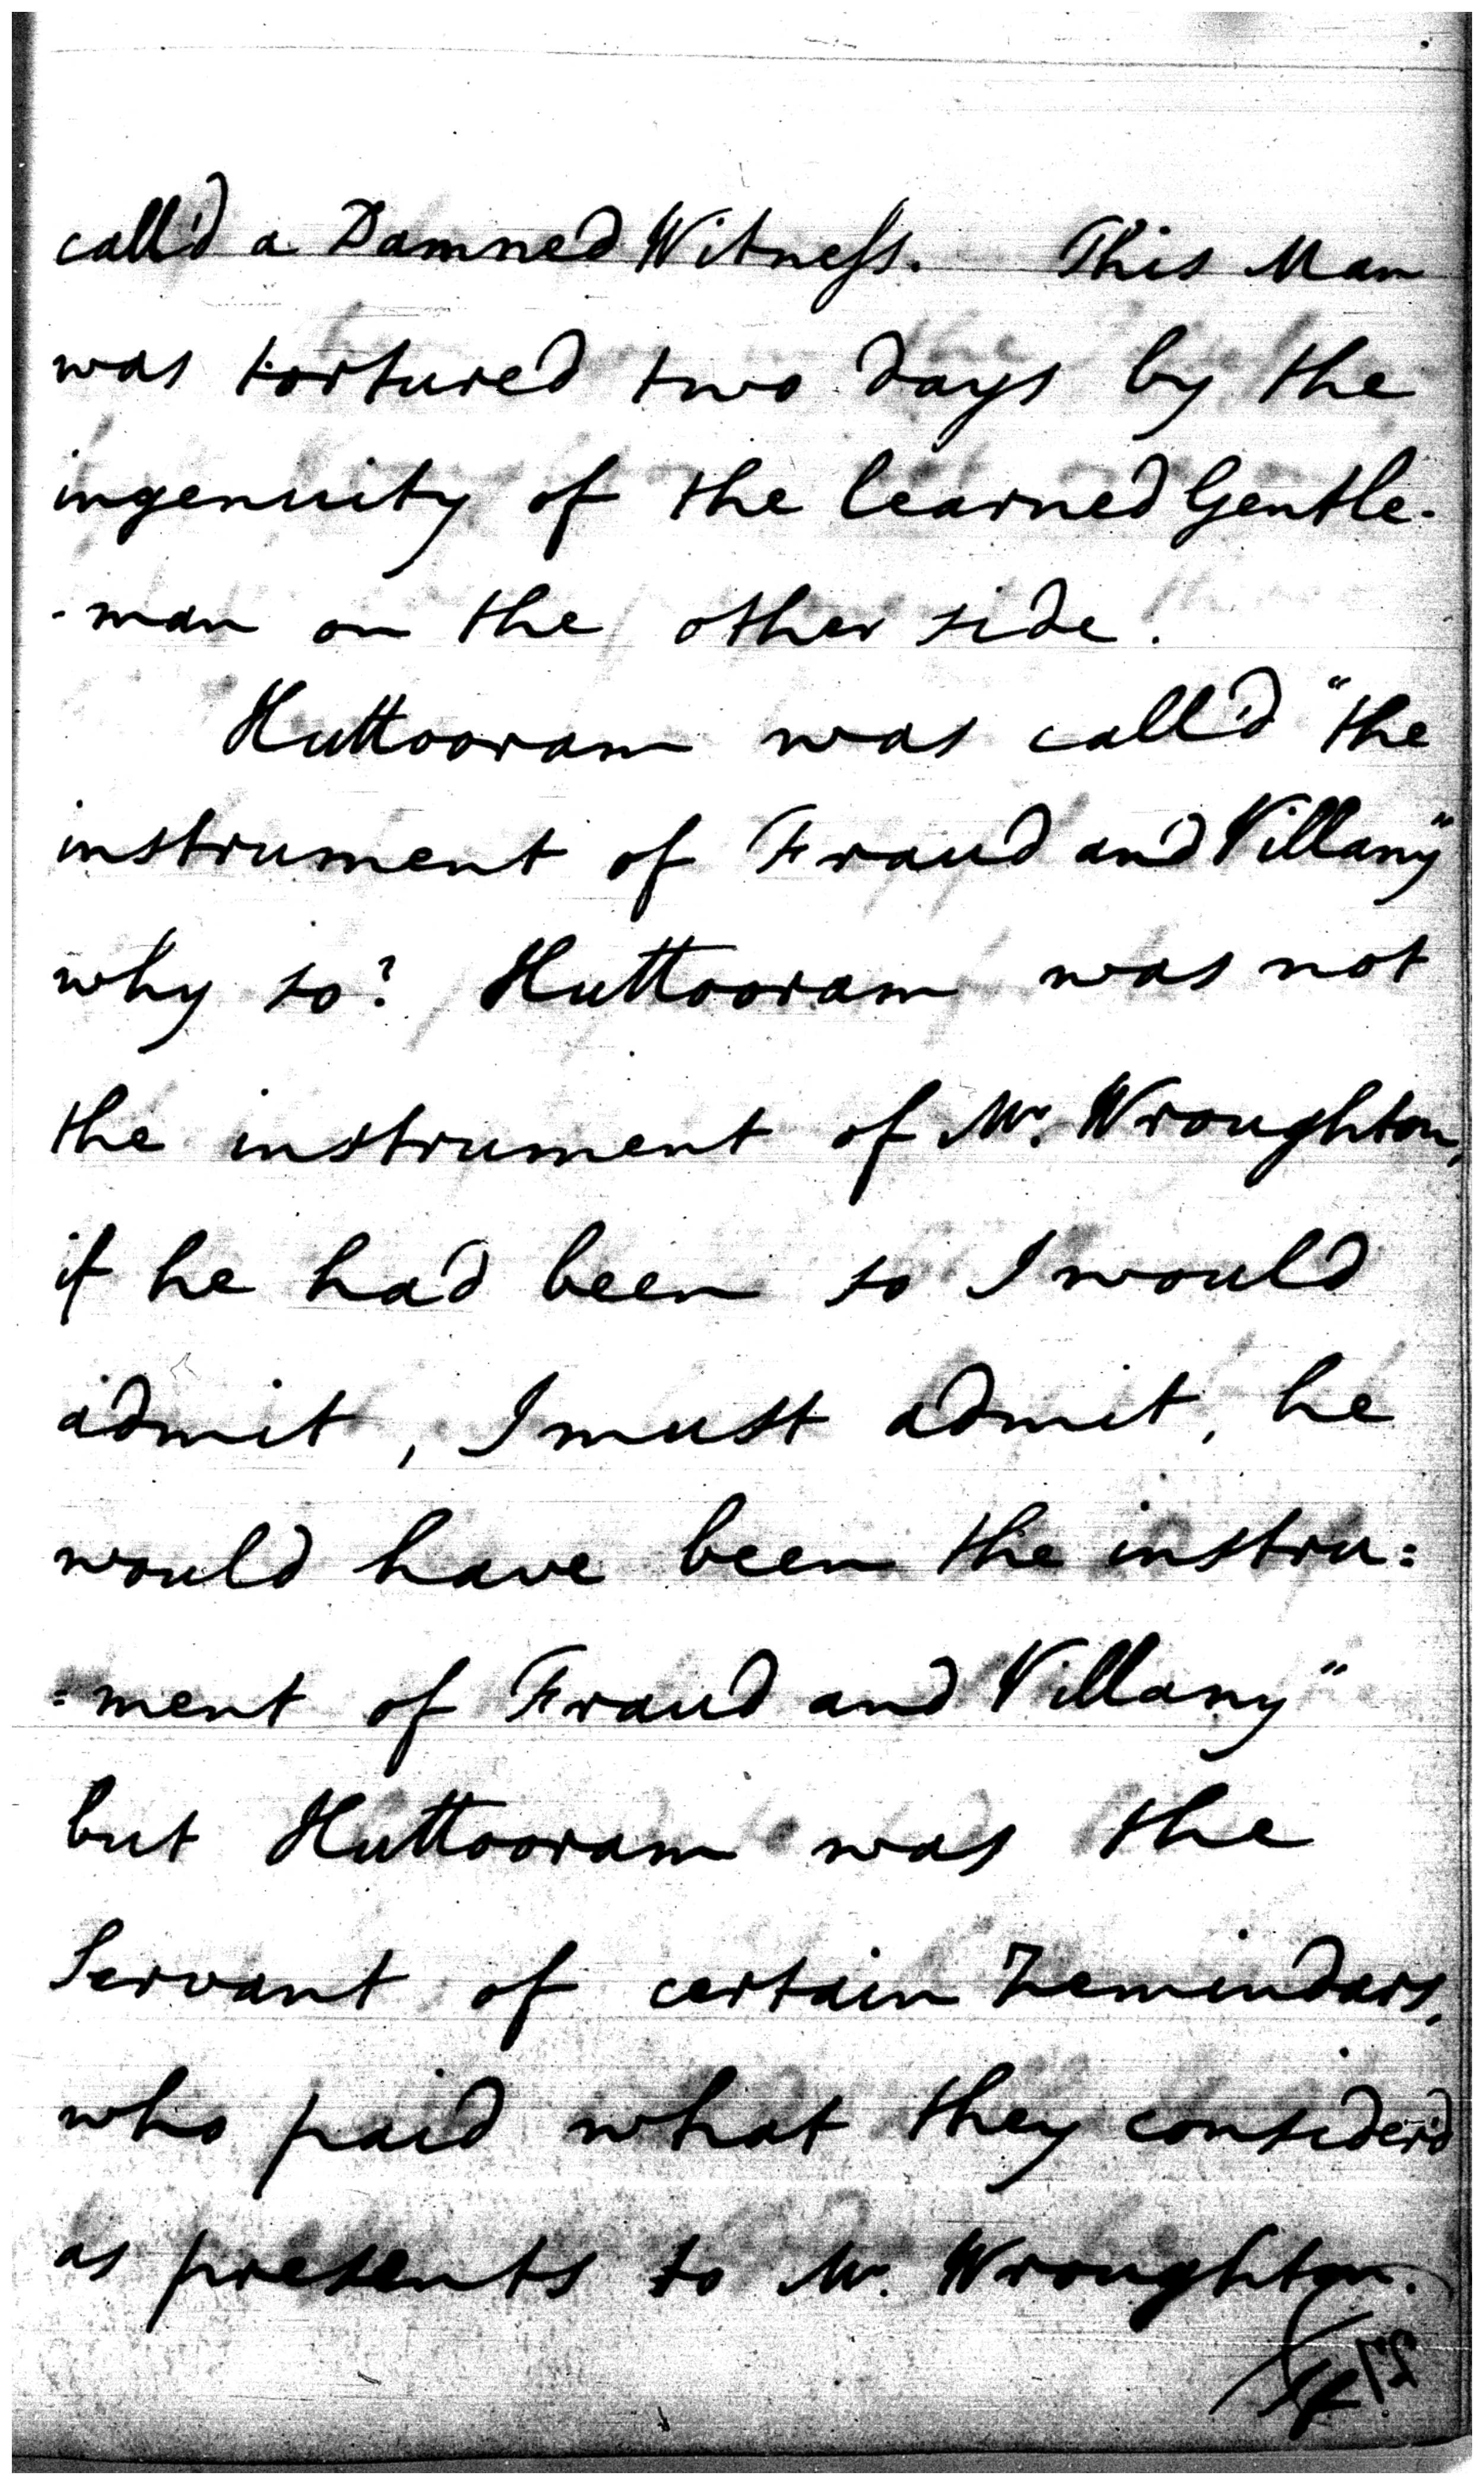 call'd a Damned Witneſs. This Man
was tortured two days by the
ingenuity of the learned Gentle-
-man on the other side.
Huttooram was call'd "the
instrument of Fraud and Villany"
why so? Huttooram was not
the instrument of Mr. Wroughton,
if he had been so I would
admit, I must admit, he
would have been the instru=
=ment of Fraud and Villany"
but Huttooram was the
Servant of certain Zemindars,
who paid what they consider'd
as presents to Mr. Wroughton.